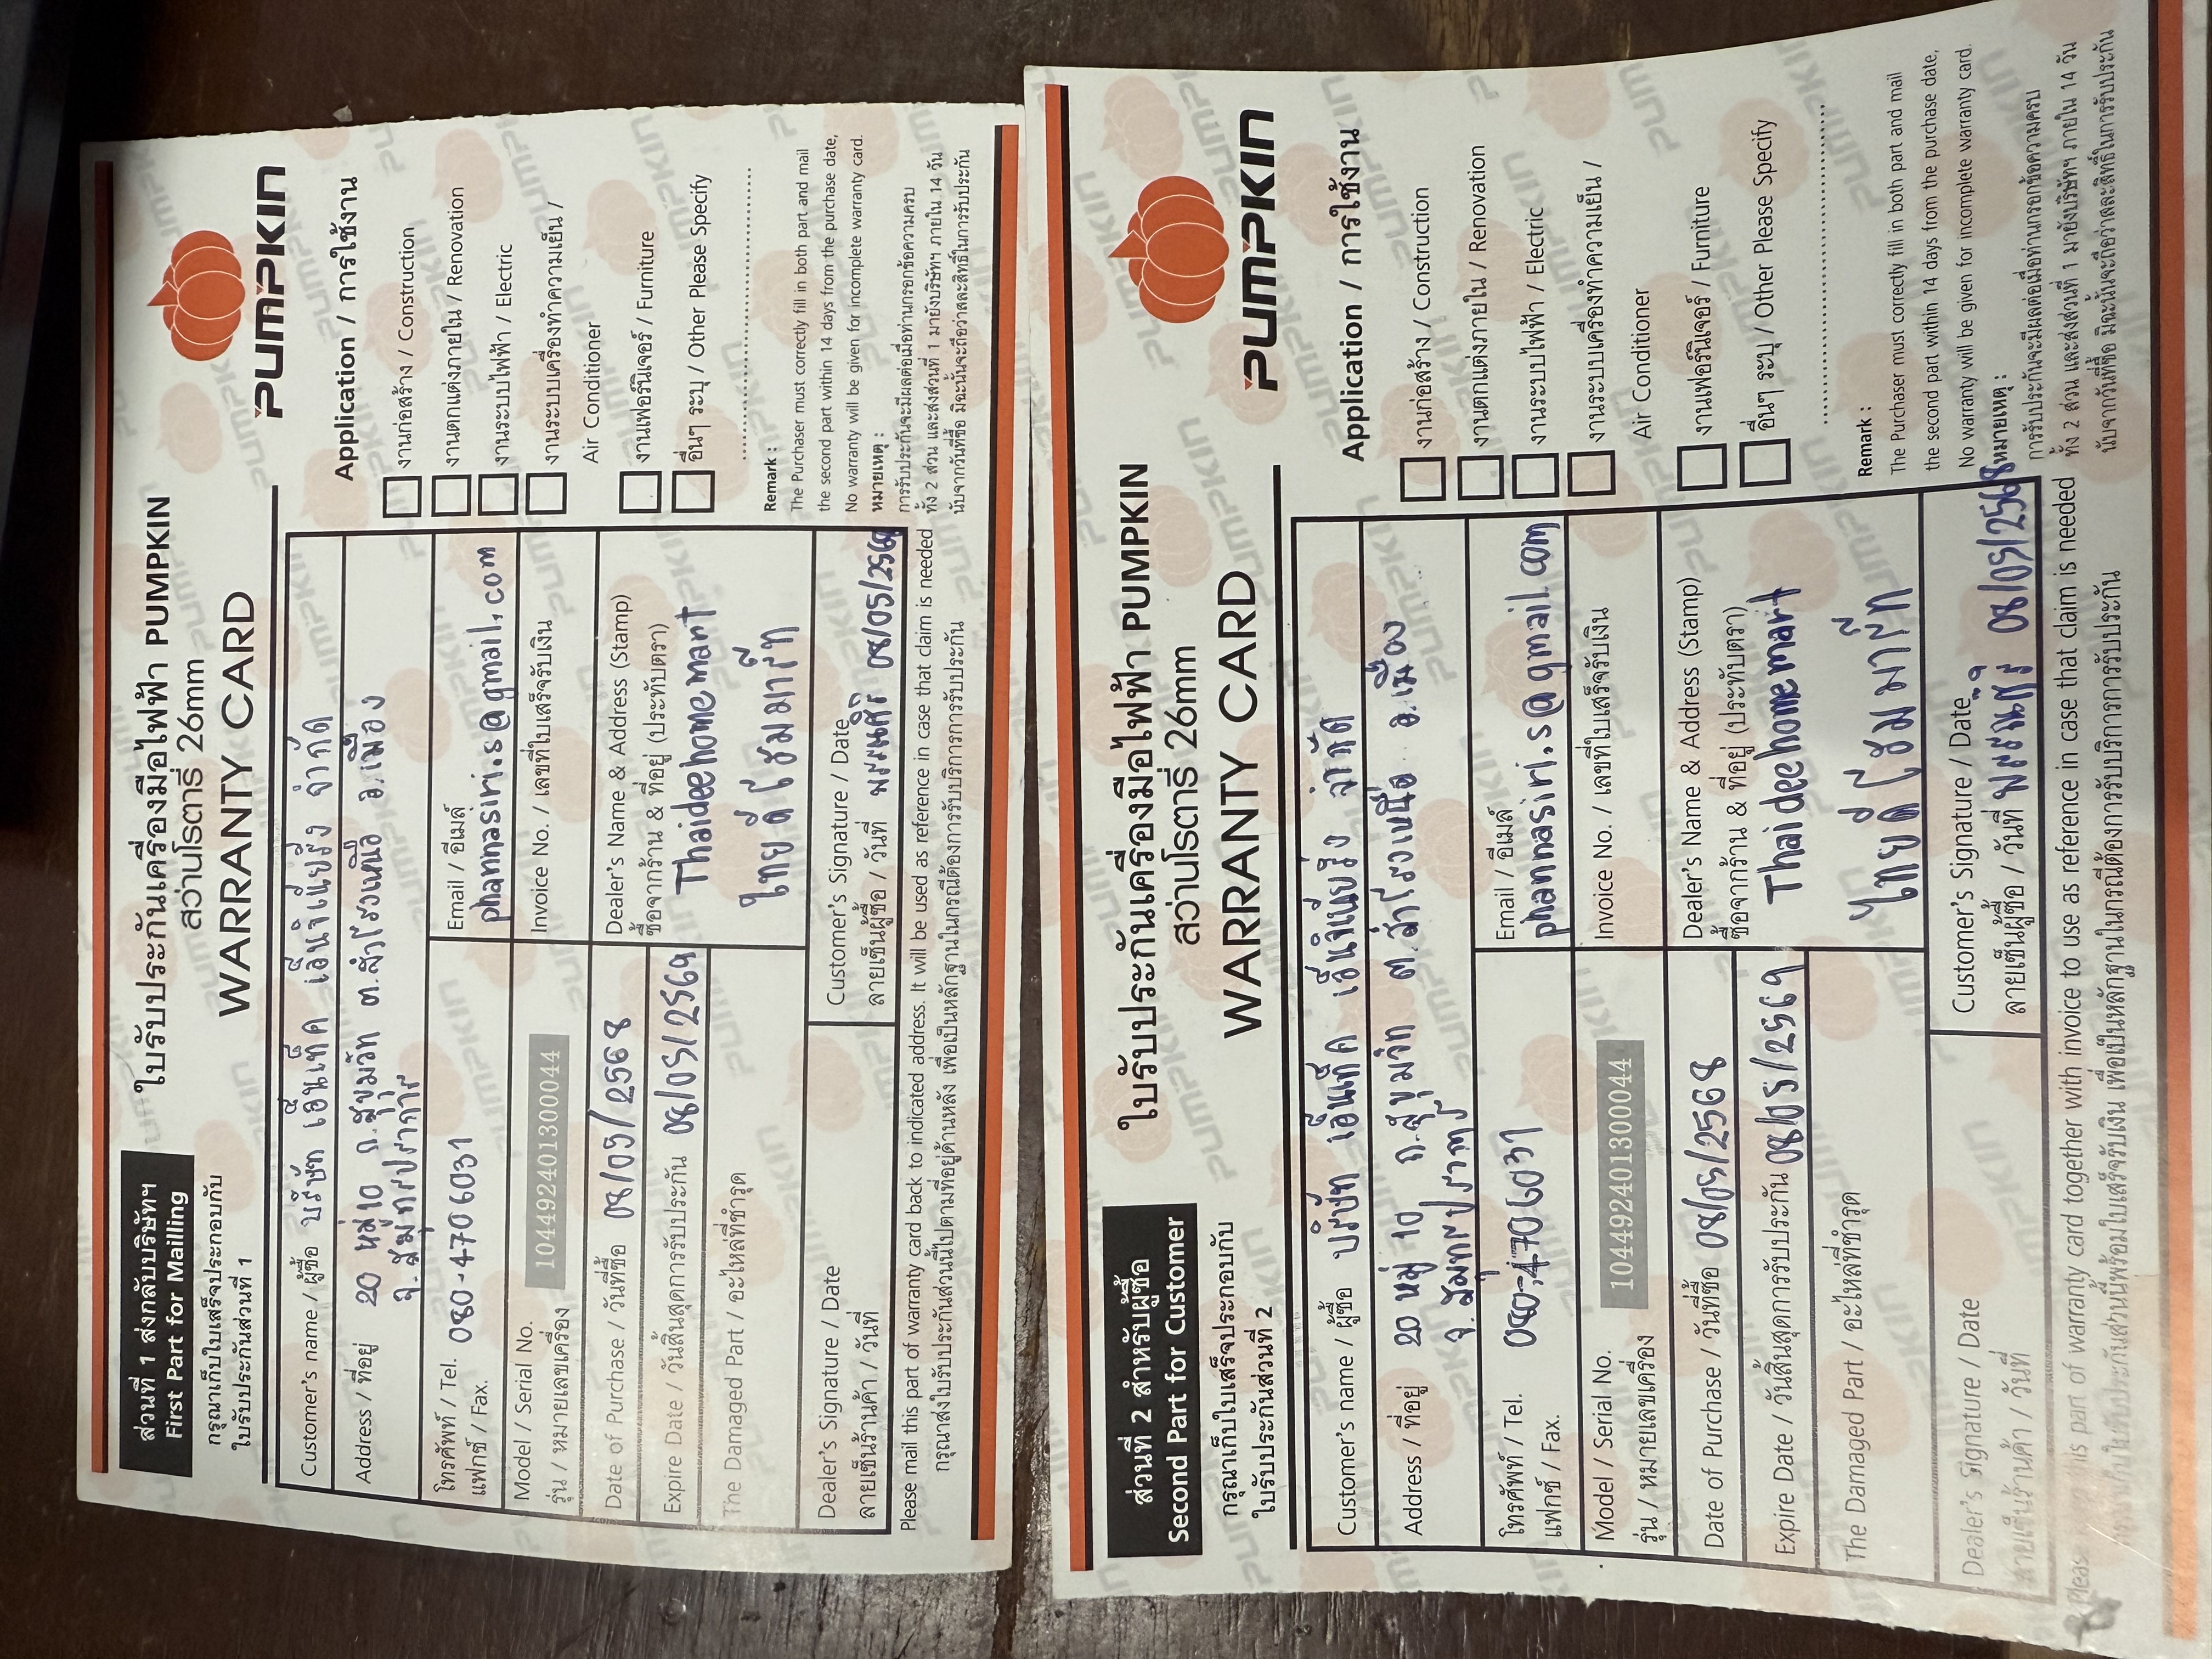 ส่วนที่ 1 ส่งกลับบริษัทฯ
First Part for Mailling
กรุณาเก็บใบเสร็จประกอบกับ
ใบรับประกันส่วนที่ 1
ใบรับประกันเครื่องมือไฟฟ้า PUMPKIN
สว่านโรตารี่ 26mm
WARRANTY CARD
PUMPKIN
Customer's name / ผู้ซื้อ บริษัท เอ็นเท็ค เอ็นจิเนียริ่ง จำกัด
Address / ที่อยู่ 20 หมู่ 10 ถ.สุขุมวิท ต.สำโรงเหนือ อ.เมือง
จ.สมุทรปราการ
โทรศัพท์ / Tel. 080-4706031
แฟกซ์ / Fax.
Email / อีเมล์
phannasiri.s@gmail.com
Model / Serial No.
รุ่น / หมายเลขเครื่อง 10449240130​0044
Invoice No. / เลขที่ใบเสร็จรับเงิน
Date of Purchase / วันที่ซื้อ 08/05/2568
Expire Date / วันสิ้นสุดการรับประกัน 08/05/2569
The Damaged Part / อะไหล่ที่ชำรุด
Dealer's Name & Address (Stamp)
ซื้อจากร้าน & ที่อยู่ (ประทับตรา)
Thaideehomemart
ไทยดีโฮมมาร์ท
Dealer's Signature / Date
ลายเซ็นร้านค้า / วันที่
Customer's Signature / Date
ลายเซ็นผู้ซื้อ / วันที่ พรรณสิริ 08/05/2568
Application / การใช้งาน
งานก่อสร้าง / Construction
งานตกแต่งภายใน / Renovation
งานระบบไฟฟ้า / Electric
งานระบบเครื่องทำความเย็น /
Air Conditioner
งานเฟอร์นิเจอร์ / Furniture
อื่นๆ ระบุ / Other Please Specify
Remark :
The Purchaser must correctly fill in both part and mail
the second part within 14 days from the purchase date,
No warranty will be given for incomplete warranty card.
หมายเหตุ :
การรับประกันจะมีผลต่อเมื่อท่านกรอกข้อความครบ
ทั้ง 2 ส่วน และส่งส่วนที่ 1 มายังบริษัทฯ ภายใน 14 วัน
นับจากวันที่ซื้อ มิฉะนั้นจะถือว่าสละสิทธิ์ในการรับประกัน
Please mail this part of warranty card back to indicated address. It will be used as reference in case that claim is needed
กรุณาส่งใบรับประกันส่วนนี้ไปตามที่อยู่ด้านหลัง เพื่อเป็นหลักฐานในกรณีต้องการรับบริการการรับประกัน
ส่วนที่ 2 สำหรับผู้ซื้อ
Second Part for Customer
กรุณาเก็บใบเสร็จประกอบกับ
ใบรับประกันส่วนที่ 2
ใบรับประกันเครื่องมือไฟฟ้า PUMPKIN
สว่านโรตารี่ 26mm
WARRANTY CARD
PUMPKIN
Customer's name / ผู้ซื้อ บริษัท เอ็นเท็ค เอ็นจิเนียริ่ง จำกัด
Address / ที่อยู่ 20 หมู่ 10 ถ.สุขุมวิท ต.สำโรงเหนือ อ.เมือง
จ.สมุทรปราการ
โทรศัพท์ / Tel. 080-4706031
แฟกซ์ / Fax.
Email / อีเมล์
phannasiri.s@gmail.com
Model / Serial No.
รุ่น / หมายเลขเครื่อง 104492401300044
Invoice No. / เลขที่ใบเสร็จรับเงิน
Date of Purchase / วันที่ซื้อ 08/05/2568
Expire Date / วันสิ้นสุดการรับประกัน 08/05/2569
The Damaged Part / อะไหล่ที่ชำรุด
Dealer's Name & Address (Stamp)
ซื้อจากร้าน & ที่อยู่ (ประทับตรา)
Thaideehomemart
ไทยดีโฮมมาร์ท
Dealer's Signature / Date
ลายเซ็นร้านค้า / วันที่
Customer's Signature / Date
ลายเซ็นผู้ซื้อ / วันที่ พรรณสิริ 08/05/2568
Application / การใช้งาน
งานก่อสร้าง / Construction
งานตกแต่งภายใน / Renovation
งานระบบไฟฟ้า / Electric
งานระบบเครื่องทำความเย็น /
Air Conditioner
งานเฟอร์นิเจอร์ / Furniture
อื่นๆ ระบุ / Other Please Specify
Remark :
The Purchaser must correctly fill in both part and mail
the second part within 14 days from the purchase date,
No warranty will be given for incomplete warranty card.
หมายเหตุ :
การรับประกันจะมีผลต่อเมื่อท่านกรอกข้อความครบ
ทั้ง 2 ส่วน และส่งส่วนที่ 1 มายังบริษัทฯ ภายใน 14 วัน
นับจากวันที่ซื้อ มิฉะนั้นจะถือว่าสละสิทธิ์ในการรับประกัน
this part of warranty card together with invoice to use as reference in case that claim is needed
ใบรับประกันส่วนนี้พร้อมใบเสร็จรับเงิน เพื่อเป็นหลักฐานในกรณีต้องการรับบริการการรับประกัน